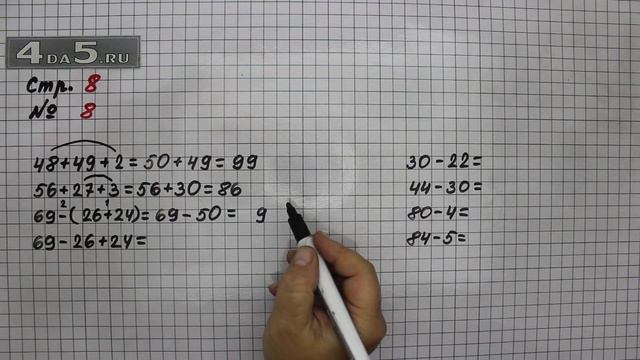 4DA5.RU
Стр. 8
№ 8
48+49+2=50+49=99
56+27+3=56+30=86
2 1
69-(26+24)=69-50= 9
69-26+24=
30-22=
44-30=
80-4=
84-5=